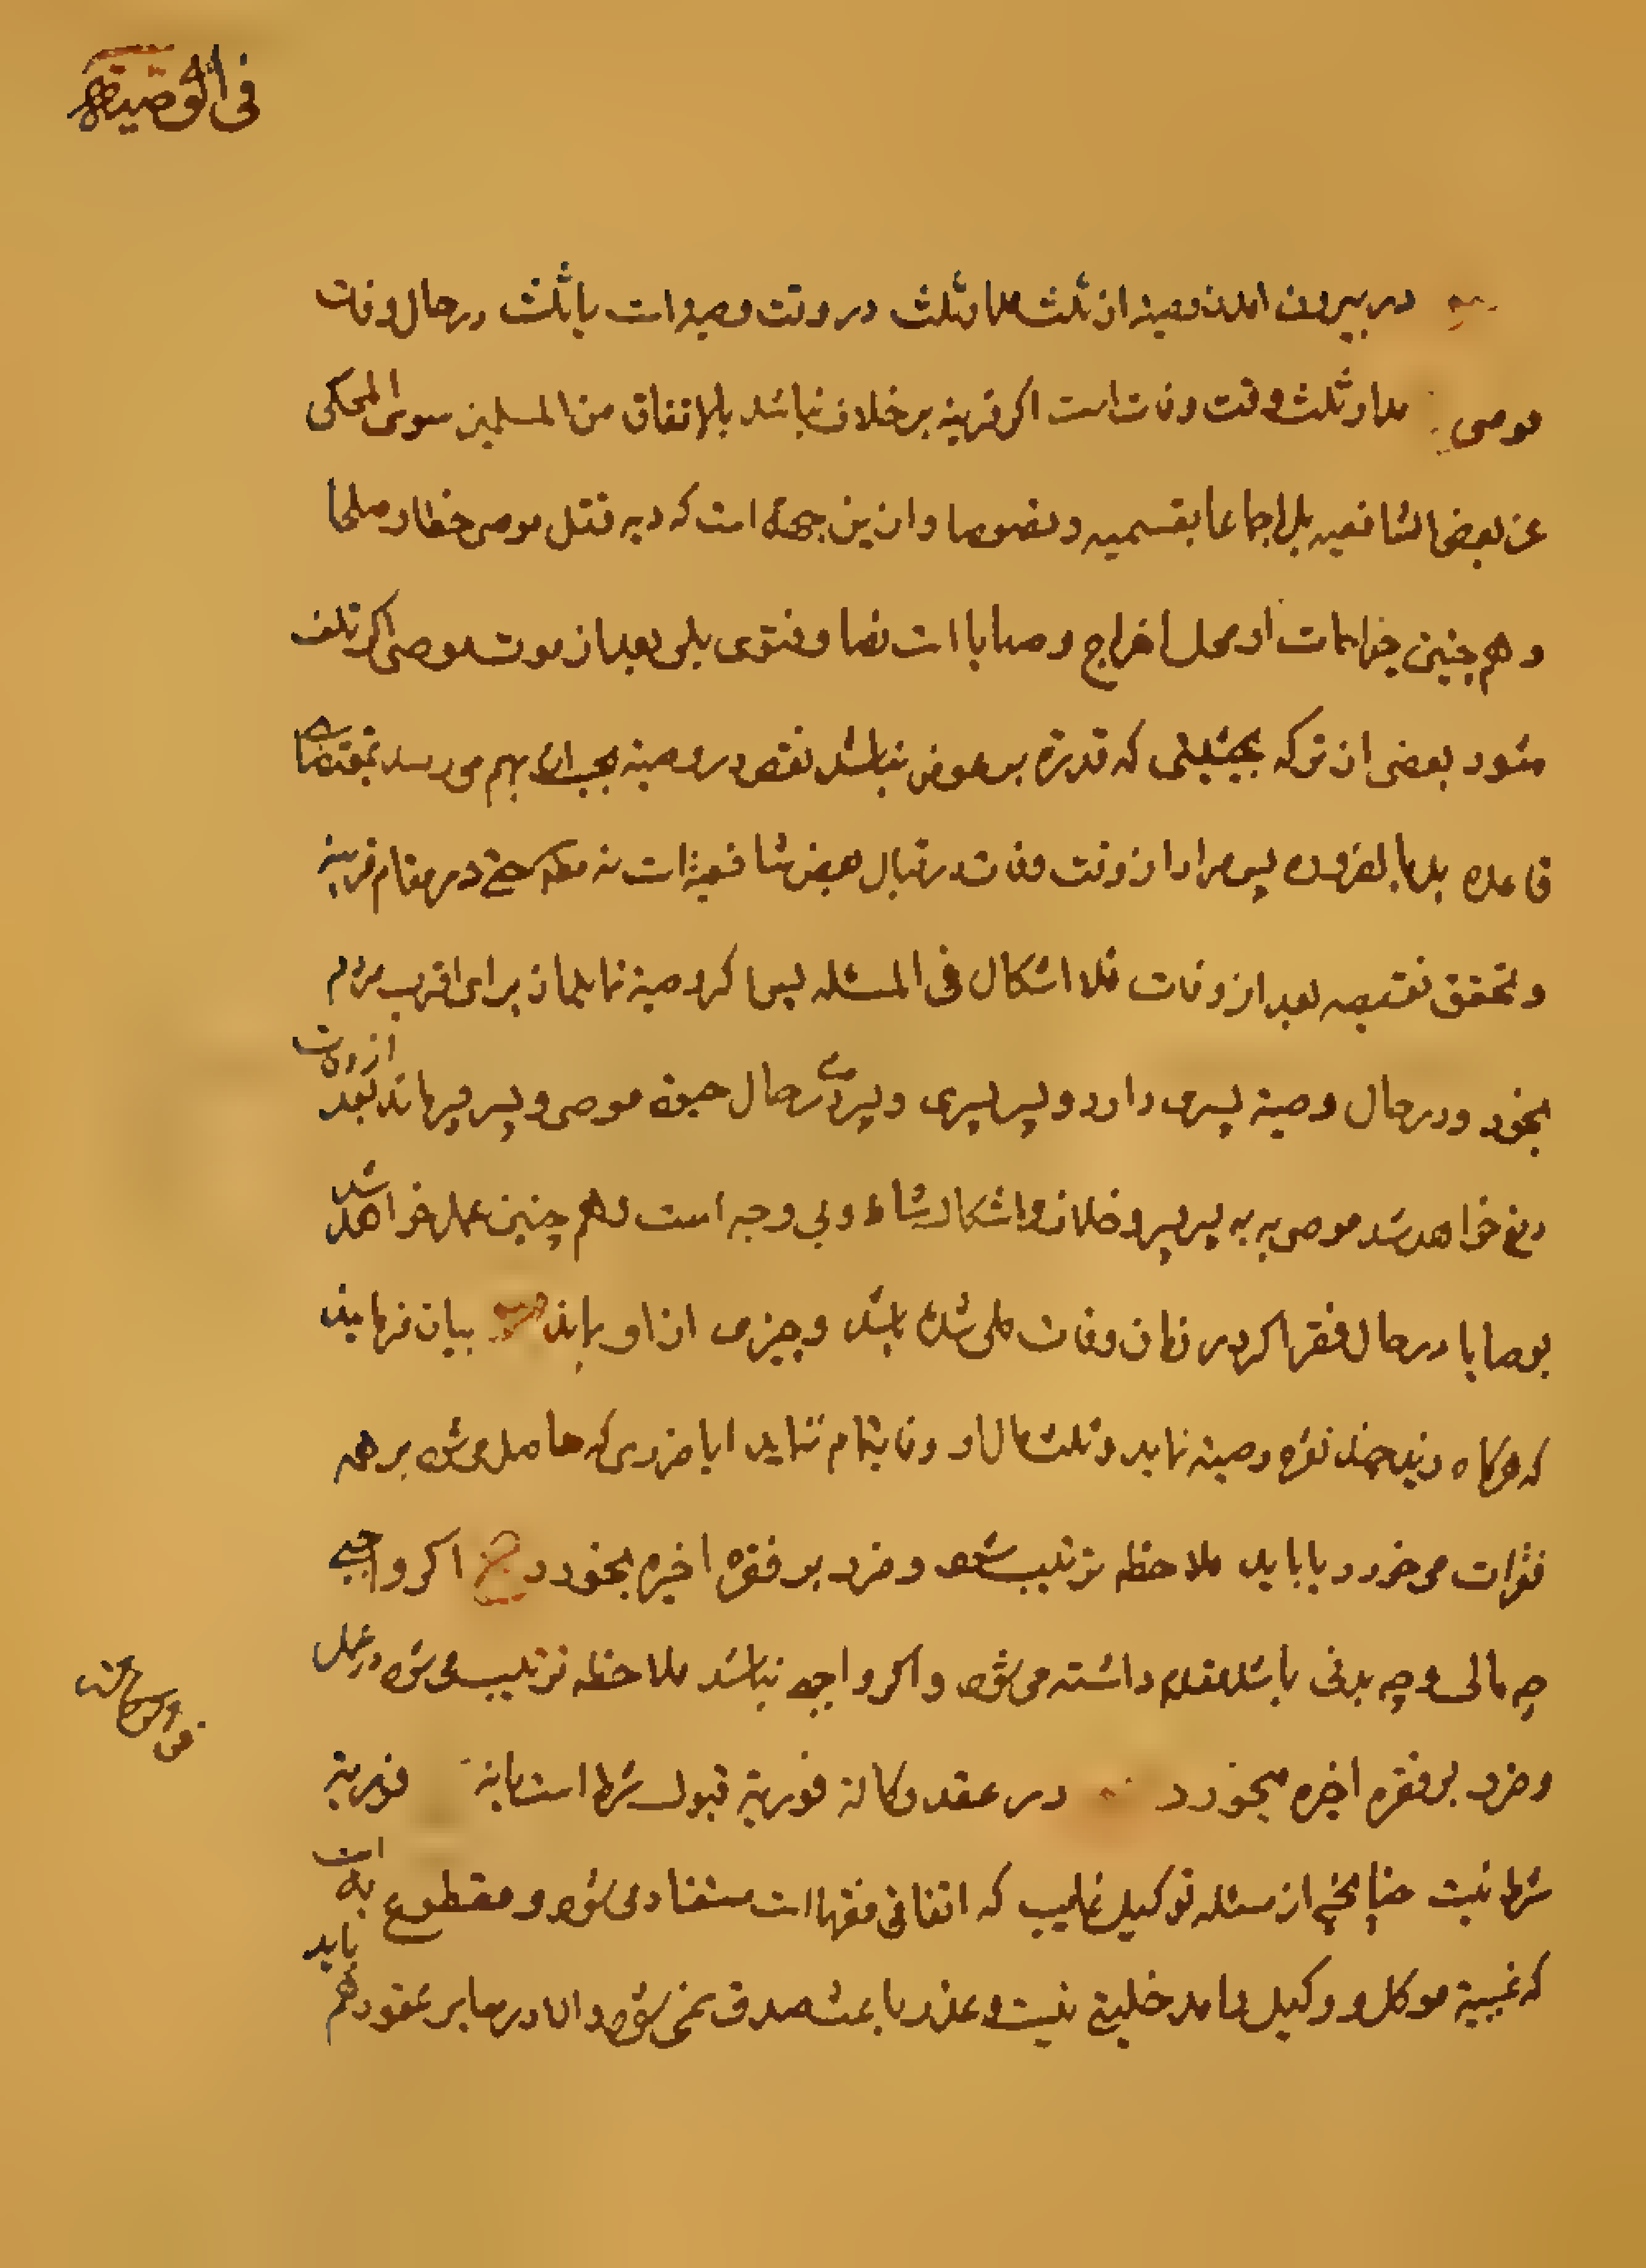 فی الوصیة
در بیرون امدن وصیة از ثلث مدار ثلث در وقت وصیة است یا ثلث در حال وفات
موصی مدار ثلث وقت وفات است اکر قرینه بر خلاف نباشد بالاتفاق من المسلمین سوی المحکی
عن بعض الشافعیه بل اجماعا بقسمیه و نصوصا و از این جهة است که دیه قتل موصی خطا و صلحا
و هم چنین جراحات او محل اخراج وصایا است نصا و فتوی بلی بعد از موت موصی اکر تلف
مشود بعضی از ترکه بحیثیتی که قدرة بر عوض نباشد نقص در وصیة بحساب بهم می رسد بمقتضای
قاعده بلا بالضروره پس مراد از وقت وفات در قبال بعض شافعیة است نه مطلقا حتی در مقام قرینه
و تحقق نقیصه بعد از وفات فلا اشکال فی المسئله پس اکر وصیة نماید از برای اقرب مردم
بخود و در حال وصیة پسری دارد و پسر پسری و پسر در حال حیوة موصی و پسر پسر ماند بعد از وفات
دفع خواهد شد موصی به به پسر پسر و خلاف و اشکال شاذ و بی وجه است و هم چنین عمل خواهد شد
بوصایا در حال فقر اکر در زمان وفات ملی شده باشد و چیزی از او بماند بیان فرمایند
که هرکاه زید چند فقره وصیة نماید و ثلث مال او وفا بتمام ننماید ایا ضرری که حاصل می شود بر همه
فقرات می خورد یا باید ملاحظه ترتیب شود و ضرر بر فقره اخیره بخورد اکر واجبی
چه مالی و چه بدنی باشد مقدم داشته می شود و اکر واجب نباشد ملاحظه ترتیب می شود در عمل
و ضرر بر فقره اخیره میخورد در عقد وکالة فوریة قبول شرط است یا نه فوریة
شرط نیست چنانچه از مسئله توکیل غایب که اتفاقی فقها است مستفاد می شود و مقطوع به است
که غیبة موکل و وکیل را مدخلیتی نیست و عذر باعث صدق نمی شود و الا در سایر عقود هم باید
فی الوکالت